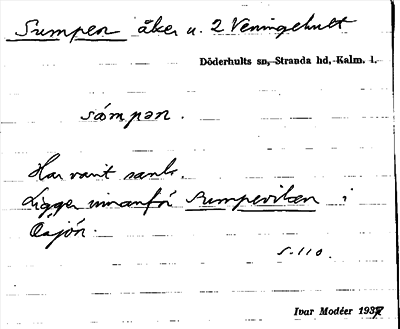 Sumpen åker u. 2 Veningehult
Döderhults sn, Stranda hd, Kalm. l.
sámpən.
Har varit sank.
Ligger innanför Sumpeviken i
Oasjön.
S. 110.
Ivar Modéer 1937